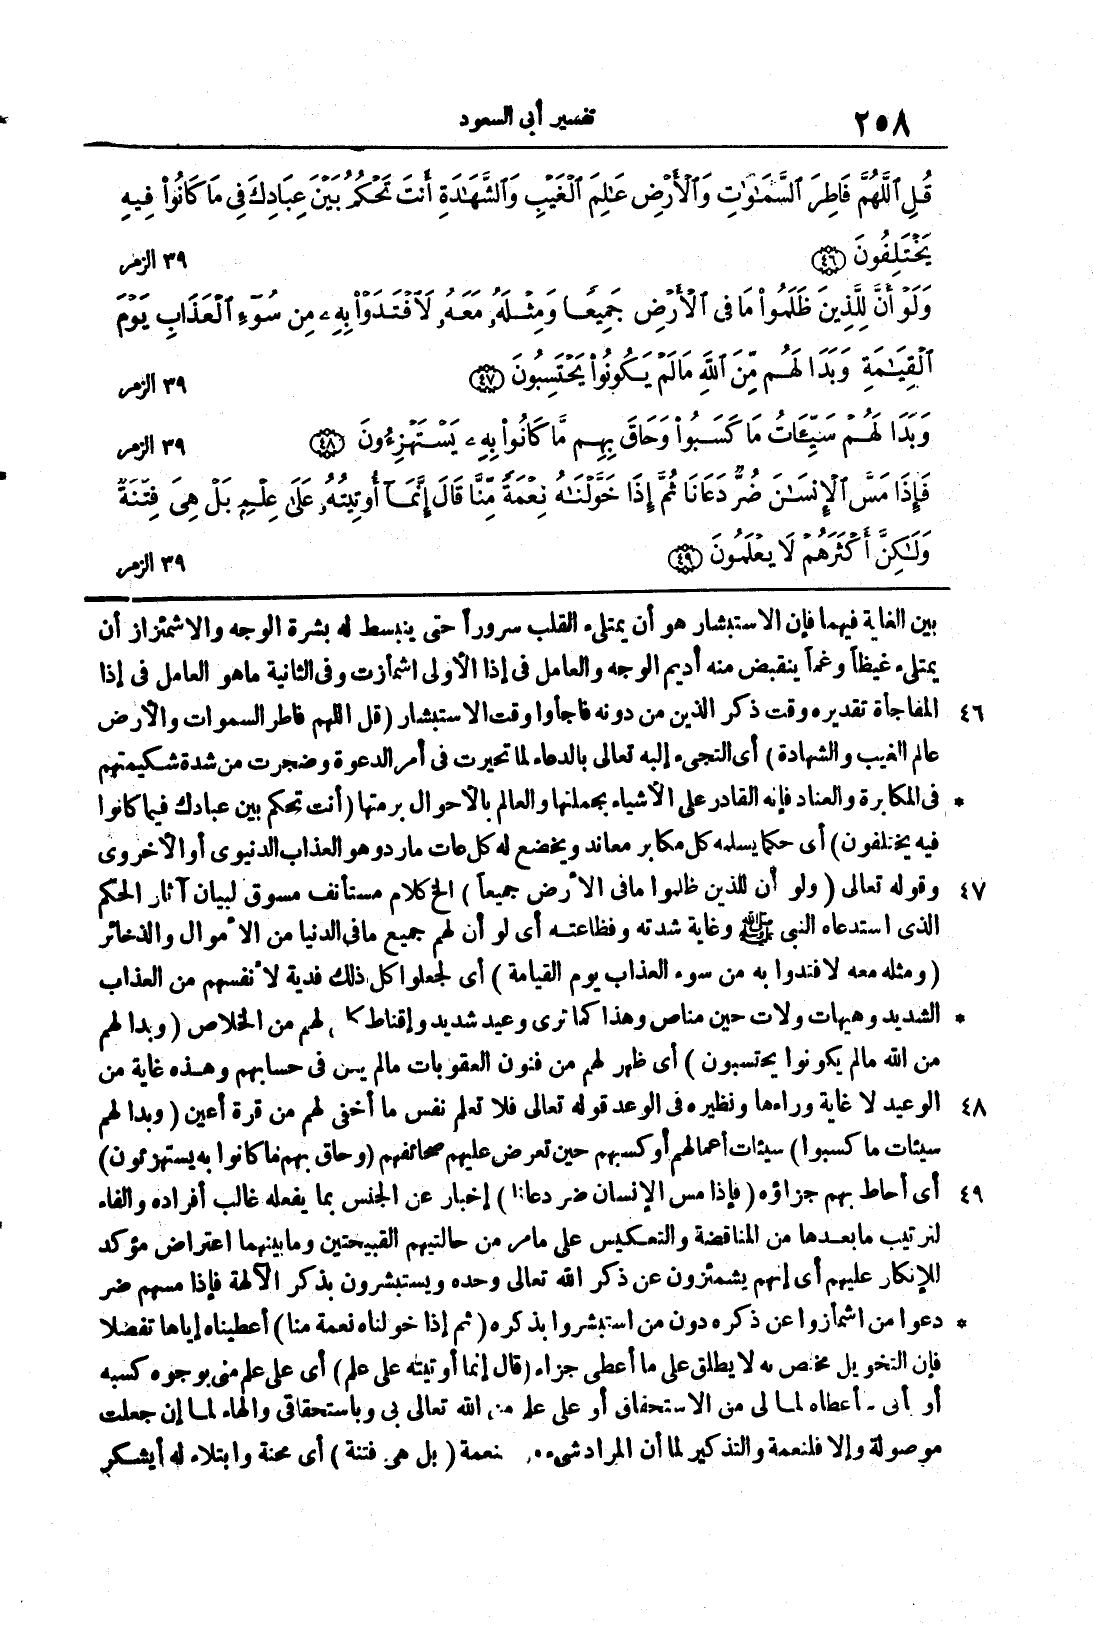 ٢٥٨ تفسير أبى السعود
قُلِ ٱللَّهُمَّ فَاطِرَ ٱلسَّمَٰوَٰتِ وَٱلْأَرْضِ عَٰلِمَ ٱلْغَيْبِ وَٱلشَّهَٰدَةِ أَنتَ تَحْكُمُ بَيْنَ عِبَادِكَ فِى مَا كَانُوا۟ فِيهِ
يَخْتَلِفُونَ ﴿٤٦﴾ ٣٩ الزمر
وَلَوْ أَنَّ لِلَّذِينَ ظَلَمُوا۟ مَا فِى ٱلْأَرْضِ جَمِيعًا وَمِثْلَهُۥ مَعَهُۥ لَٱفْتَدَوْا۟ بِهِۦ مِن سُوٓءِ ٱلْعَذَابِ يَوْمَ
ٱلْقِيَٰمَةِ وَبَدَا لَهُم مِّنَ ٱللَّهِ مَا لَمْ يَكُونُوا۟ يَحْتَسِبُونَ ﴿٤٧﴾ ٣٩ الزمر
وَبَدَا لَهُمْ سَيِّـَٔاتُ مَا كَسَبُوا۟ وَحَاقَ بِهِم مَّا كَانُوا۟ بِهِۦ يَسْتَهْزِءُونَ ﴿٤٨﴾ ٣٩ الزمر
فَإِذَا مَسَّ ٱلْإِنسَٰنَ ضُرٌّ دَعَانَا ثُمَّ إِذَا خَوَّلْنَٰهُ نِعْمَةً مِّنَّا قَالَ إِنَّمَآ أُوتِيتُهُۥ عَلَىٰ عِلْمٍۭ بَلْ هِىَ فِتْنَةٌ
وَلَٰكِنَّ أَكْثَرَهُمْ لَا يَعْلَمُونَ ﴿٤٩﴾ ٣٩ الزمر
بين الغاية فيهما فإن الاستبشار هو أن يمتلىء القلب سروراً حتى ينبسط له بشرة الوجه والاشمئزاز أن
يمتلىء غيظاً وغماً ينقبض منه أديم الوجه والعامل فى إذا الأولى اشمأزت وفى الثانية ماهو العامل فى إذا
٤٦ المفاجأة تقديره وقت ذكر الذين من دونه فاجأوا وقت الاستبشار (قل اللهم فاطر السموات والأرض
عالم الغيب والشهادة) أى التجىء إليه تعالى بالدعاء لما تحيرت فى أمر الدعوة وضجرت من شدة شكيمتهم
* فى المكابرة والعناد فإنه القادر على الأشياء بجملتها والعالم بالأحوال برمتها (أنت تحكم بين عبادك فيما كانوا
فيه يختلفون) أى حكما يسلمه كل مكابر معاند ويخضع له كل عات مارد وهو العذاب الدنيوى أو الأخروى
٤٧ وقوله تعالى (ولو أن للذين ظلموا مافى الأرض جميعاً) الخ كلام مستأنف مسوق لبيان آثار الحكم
الذى استدعاه النبى ﷺ وغاية شدته وفظاعته أى لو أن لهم جميع مافى الدنيا من الأموال والذخائر
(ومثله معه لافتدوا به من سوء العذاب يوم القيامة) أى لجعلوا كل ذلك فدية لأنفسهم من العذاب
* الشديد وهيهات ولات حين مناص وهذا كما ترى وعيد شديد وإقناط لهم من الخلاص (وبدا لهم
من الله مالم يكونوا يحتسبون) أى ظهر لهم من فنون العقوبات مالم يكن فى حسابهم وهذه غاية من
٤٨ الوعيد لا غاية وراءها ونظيره فى الوعد قوله تعالى فلا تعلم نفس ما أخفى لهم من قرة أعين (وبدا لهم
سيئات ما كسبوا) سيئات أعمالهم أو كسبهم حين تعرض عليهم صحائفهم (وحاق بهم ما كانوا به يستهزئون)
٤٩ أى أحاط بهم جزاؤه (فإذا مس الإنسان ضر دعانا) إخبار عن الجنس بما يفعله غالب أفراده والفاء
لترتيب مابعدها من المناقضة والتعكيس على مامر من حالتيهم القبيحتين ومابينهما اعتراض مؤكد
للإنكار عليهم أى إنهم يشمئزون عن ذكر الله تعالى وحده ويستبشرون بذكر الآلهة فإذا مسهم ضر
* دعوا من اشمأزوا عن ذكره دون من استبشروا بذكره (ثم إذا خولناه نعمة منا) أعطيناه إياها تفضلا
فإن التخويل مختص به لا يطلق على ما أعطى جزاء (قال إنما أوتيته على علم) أى على علم منى بوجوه كسبه
أو بأنى سأعطاه لما لى من الاستحقاق أو على علم من الله تعالى بى وباستحقاقى والهاء لما إن جعلت
موصولة وإلا فلنعمة والتذكير لما أن المراد شىء نعمة (بل هى فتنة) أى محنة وابتلاء له أيشكر